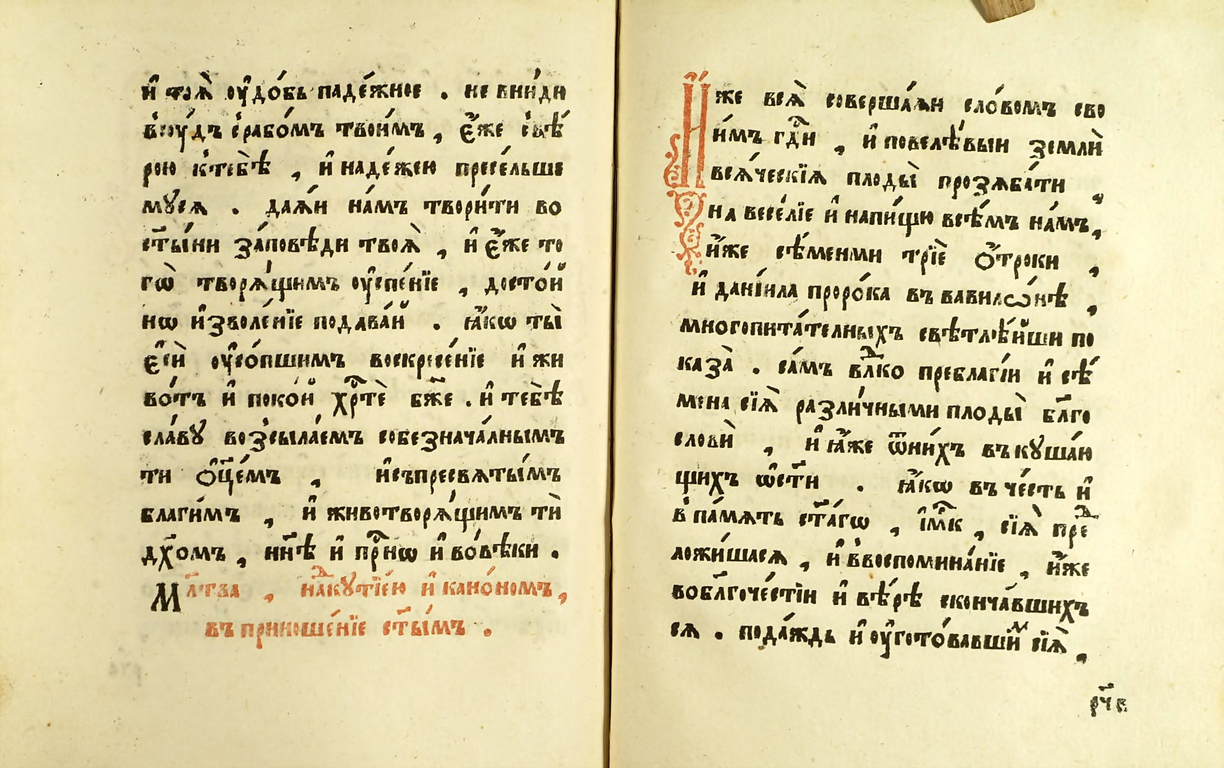 и҆ тоѧ̀ оу҆до́бь паде́жное . не вни́ди
в̾сꙋ́дъ с̾рабо́мъ твои́мъ , є҆́же с̾вѣ́
рою к̾тебѣ̀ , и҆ наде́жею пресе́льше
мꙋсѧ . даѧ́и на́мъ твори́ти во
ст҃ы́ни за́повѣди твоѧ̀ , и҆ є҆́же то
гѡ̀ творѧ́щимъ оу҆спе́нїе , досто́й
нѡ и҆зволе́нїе подава́й . ꙗ҆́кѡ ты̀
є҆сѝ оу҆со́пшимъ воскресе́нїе и҆ жи
во́тъ и҆ поко́й хрⷭ҇тѐ бж҃е . и҆ тебѣ̀
сла́вꙋ возсыла́емъ собезнача́лнымъ
ти ѻ҆ц҃е́мъ , и҆съпресвѧты́мъ
благи́мъ , и҆ животворѧ́щимъ тѝ
дх҃омъ , нн҃ѣ и҆ прⷭ҇нѡ и҆ во́вѣки .
Мл҃тва , наⷣкꙋтїе́ю и҆ кано́номъ ,
въ приноше́нїе ст҃ы́мъ .
И҆́же всѧ̀ соверша́ѧи сло́вомъ сво
и́мъ гдⷭ҇и , и҆ повелѣ́выи землѝ
всѧ́ческїѧ плоды̀ прозѧба́ти ,
на весе́лїе и҆ напи́щю всѣ́мъ на́мъ ,
и҆́же сѣ́менми трїѐ ѻ҆́троки ,
и҆ данїи́ла проро́ка въ вавилѡ́нѣ ,
многопита́телныхъ свѣтлѣ́йши по
каза̀ . са́мъ влⷣко преблагі́и и҆ сѣ́
мена сїѧ̀ разли́чными плоды̀ бл҃го
словѝ , и҆ ꙗ҆́же ѿни́хъ въкꙋша́ю
щихъ ѡ҆ст҃и . ꙗ҆́кѡ въ че́сть и҆
в̾ па́мѧть ст҃а́гѡ , и҆́мⷬ҇к , сїѧ̀ преⷣ
ложи́шасѧ , и҆ в̾воспомина́нїе , и҆́же
воблⷢ҇оче́стїи и҆ вѣ́рѣ сконча́вшихъ
сѧ . пода́ждь и҆ оу҆гото́вавшиⷨ сїѧ̀ ,
рч҃в